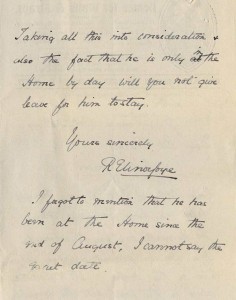 Taking all this into consideration &
also the fact that he is only in the
Home by day will you not give
leave for him to stay.
Yours sincerely
I forgot to mention that he has
been at the Home since the
end of August, I cannot say the
exact date.